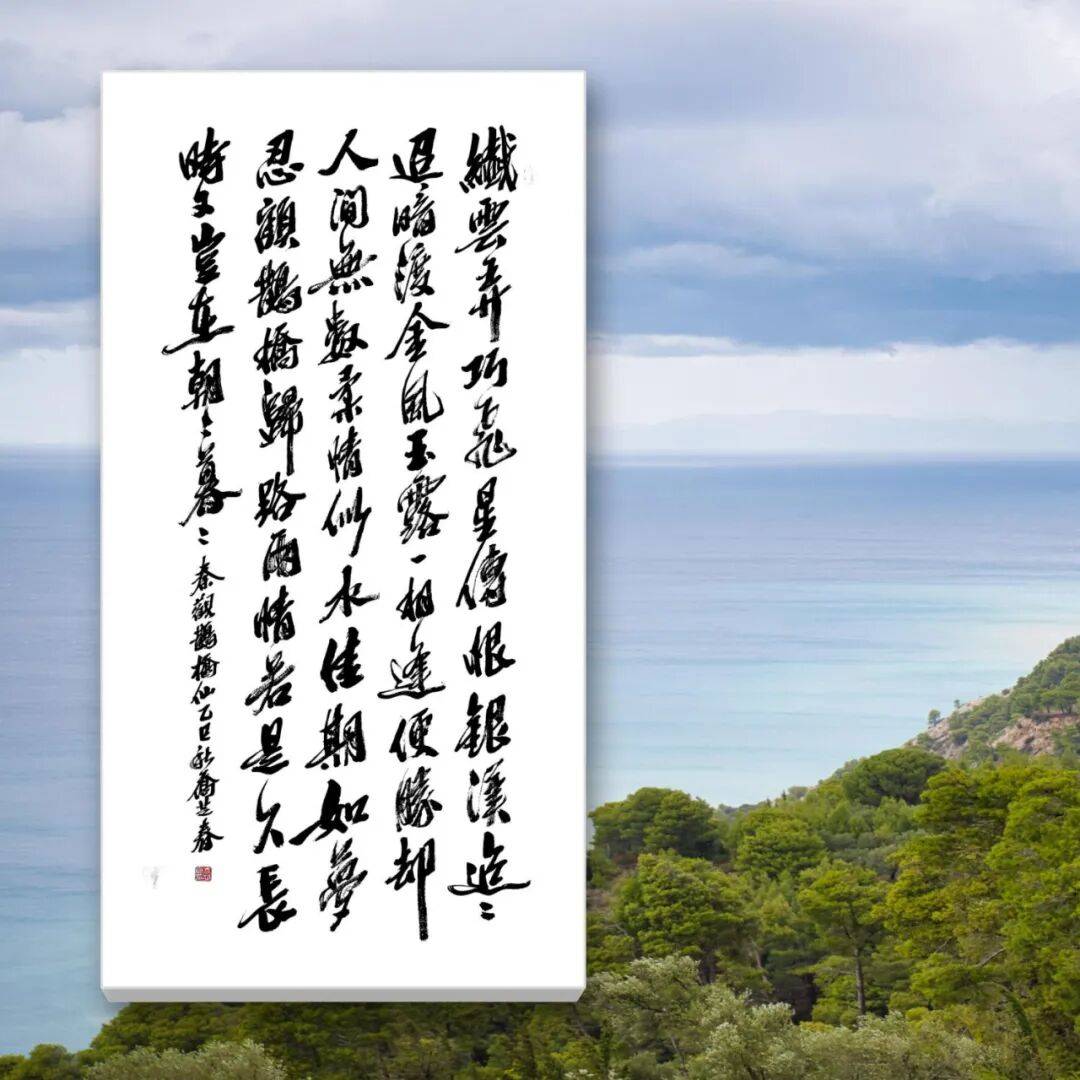 纖雲弄巧飛星傳恨銀漢迢〻
迢暗渡金風玉露一相逢便勝却
人間無數柔情似水佳期如夢
忍顧鵲橋歸路兩情若是久長
時又豈在朝〻暮〻 秦觀鵲橋仙乙巳秋